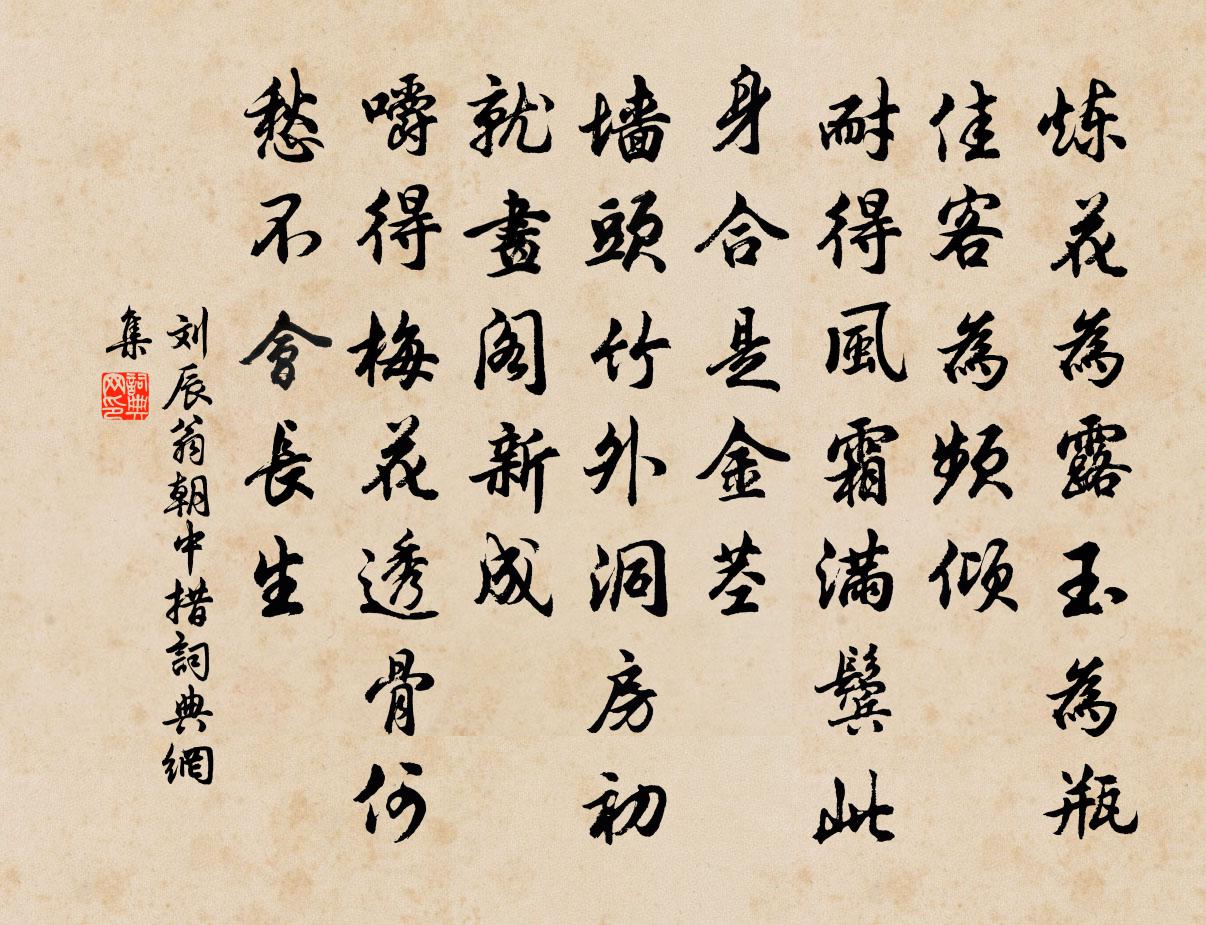 炼花為露玉為瓶
佳客為頻傾
耐得風霜满鬓此
身合是金茎
墙頭竹外洞房初
就畫阁新成
嚼得梅花透骨何
愁不會長生
刘辰翁朝中措詞典網
集
詞典网印